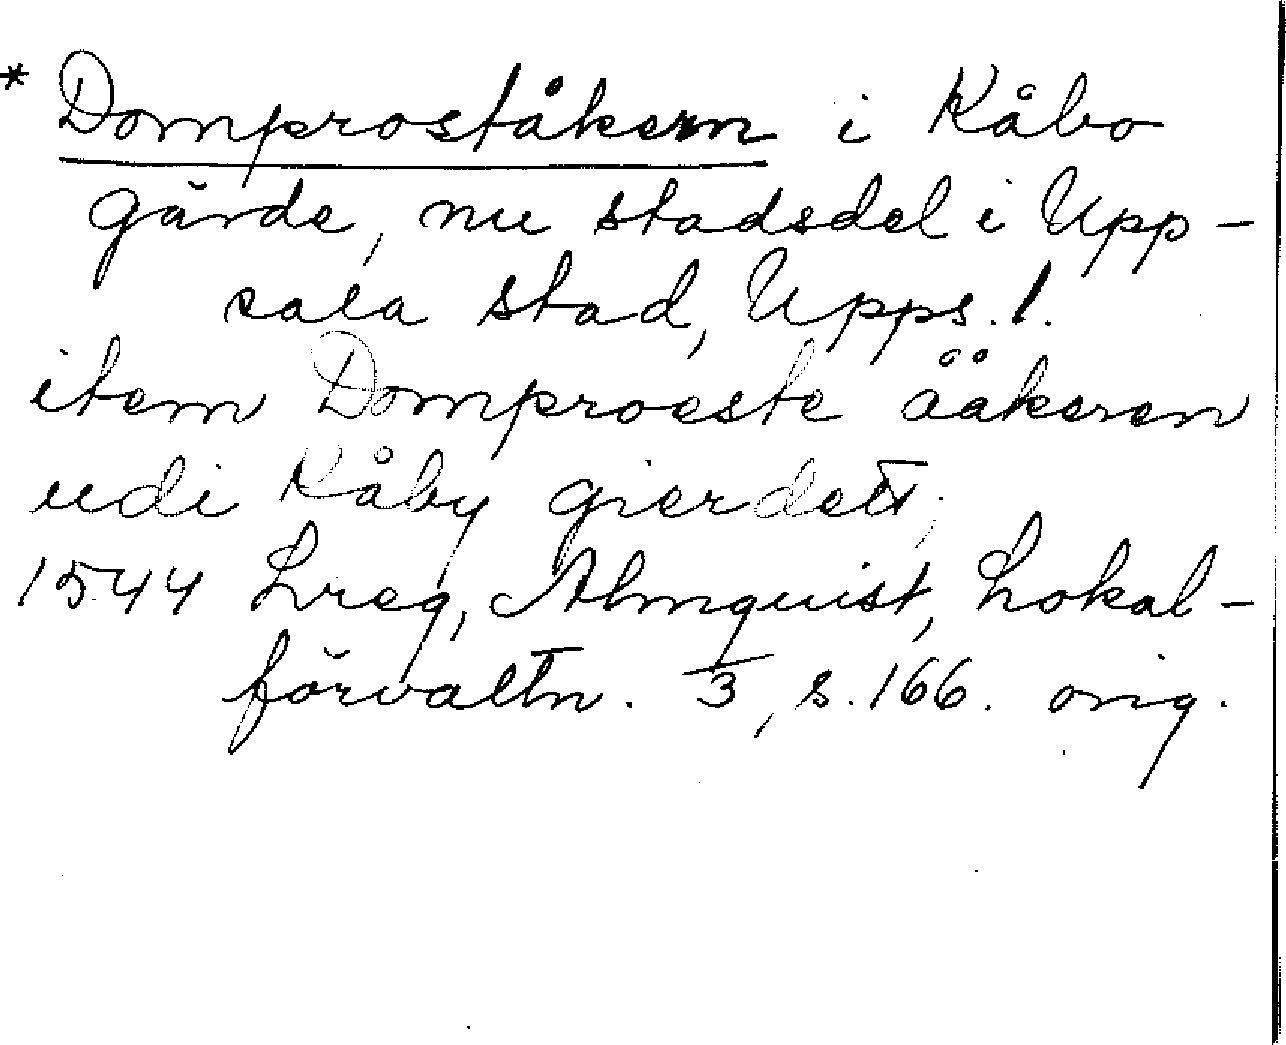 * Domproståkern i Kåbo
gärde, nu stadsdel i Upp-
sala stad, Upps. l.
item Domproeste ååkeren
udi Kåby gierdett;
1544 Lreg, Almquist, Lokal-
förvaltn. 3, s. 166. orig.